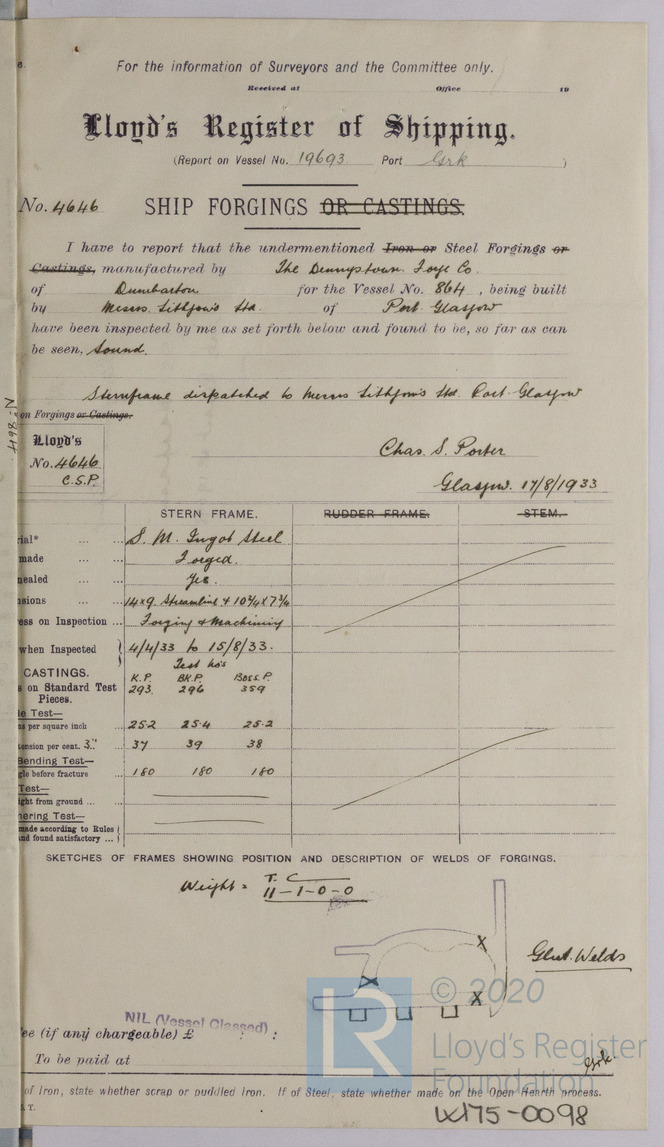 For the information of Surveyors and the Committee only.
Received at Office 19
Lloyd's Register of Shipping.
(Report on Vessel No. 19693 Port Grk )
No. 4646 SHIP FORGINGS OR CASTINGS.
I have to report that the undermentioned Iron or Steel Forgings or
Castings, manufactured by The Dennystown Forge Co.
of Dumbarton for the Vessel No. 864, being built
by Messrs. Lithgows Ltd. of Port Glasgow
have been inspected by me as set forth below and found to be, so far as can
be seen, Sound.
Sternframe dispatched to Messrs Lithgows Ltd. Port-Glasgow
on Forgings or Castings.
Lloyd's
No. 4646
C.S.P.
Chas. S. Porter
Glasgow. 17/8/1933
STERN FRAME. RUDDER FRAME. STEM.
rial* ... ... S. M. Ingot Steel
made ... ... Forged.
nealed ... ... Yes.
nsions ... ... 14x9 Streamline + 10¾ x 7¾
ess on Inspection ... Forging & Machining
when Inspected 4/4/33 to 15/8/33.
Test No's
CASTINGS. K.P. BK.P. Boss.P.
s on Standard Test 293. 296 359
Pieces.
le Test—
ns per square inch ... 25.2 25.4 25.2
tension per cent. 3" ... 37 39 38
Bending Test—
gle before fracture ... 180 180 180
Test—
ight from ground ... ...
mering Test—
made according to Rules
nd found satisfactory ...
SKETCHES OF FRAMES SHOWING POSITION AND DESCRIPTION OF WELDS OF FORGINGS.
T. C
Weight = 11-1-0-0
Glut. Welds
© 2020
NIL (Vessel Classed)
ee (if any chargeable) £ : :
Lloyd's Register
Foundation
To be paid at
Grk.
of Iron, state whether scrap or puddled Iron. If of Steel, state whether made on the Open Hearth process.
S. T.
W175-0098